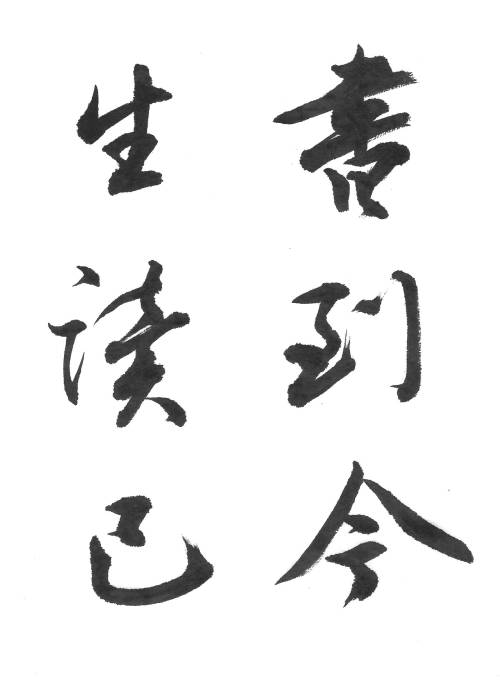 書到今
生读已